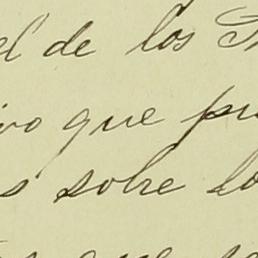 el de los
ivo que pu
s sobre lo
que